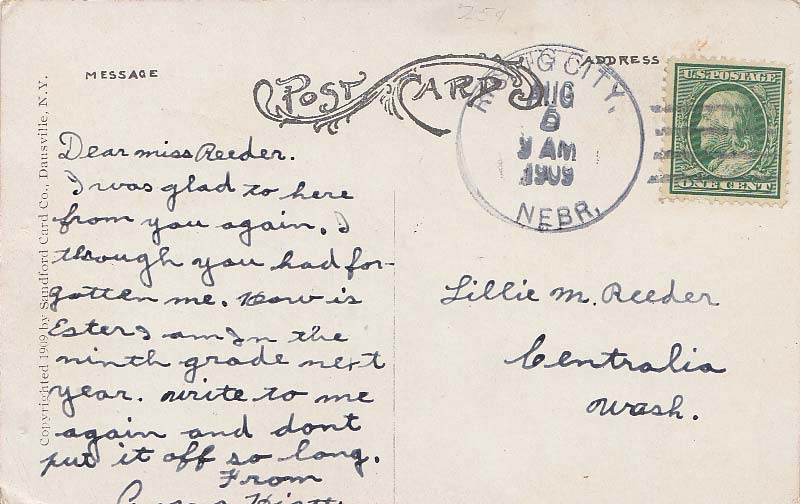 254
MESSAGE
POST CARD
ADDRESS
RISING CITY,
AUG
6
9 AM
1909
NEBR.
U.S. POSTAGE
ONE CENT
Copyrighted 1909 by Sandford Card Co., Dansville, N. Y.
Dear miss Reeder.
I was glad to here
from you again. I
though you had for-
gotten me. How is
Ester I am In the
ninth grade next
year. write to me
again and dont
put it off so long.
From
Lillie M. Reeder
Centralia
Wash.